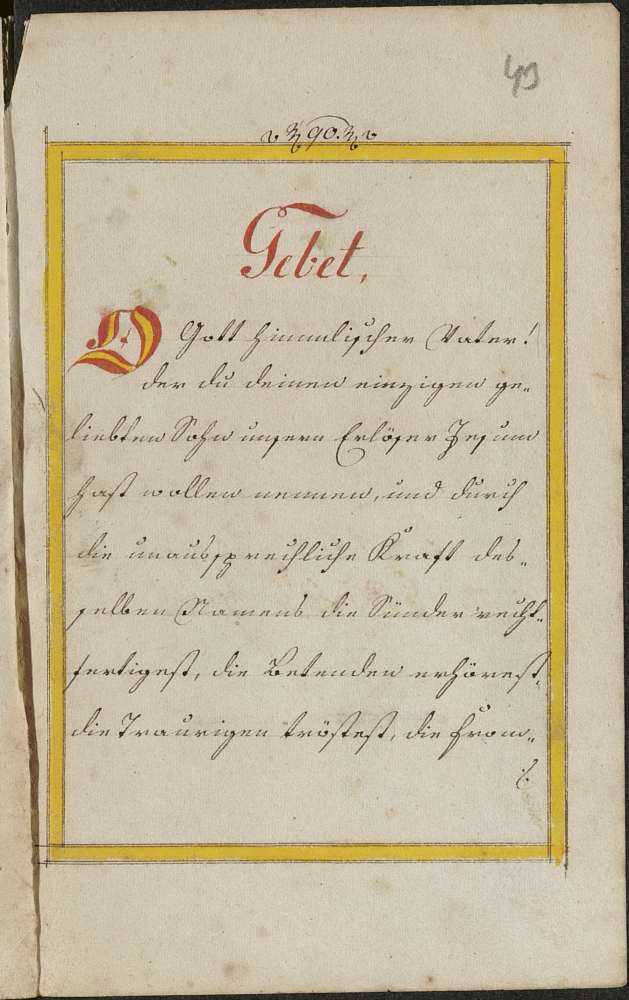 49
90.
Gebet,
O Gott himmlischer Vater!
der du deinen einzigen ge„
liebten Sohn unsern Erlöser Jesum
hast wollen nennen, und durch
die unaussprechliche Kraft des„
selben Namens die Sünder recht„
fertigest, die Betenden erhörest,
die Traurigen tröstest, die from„